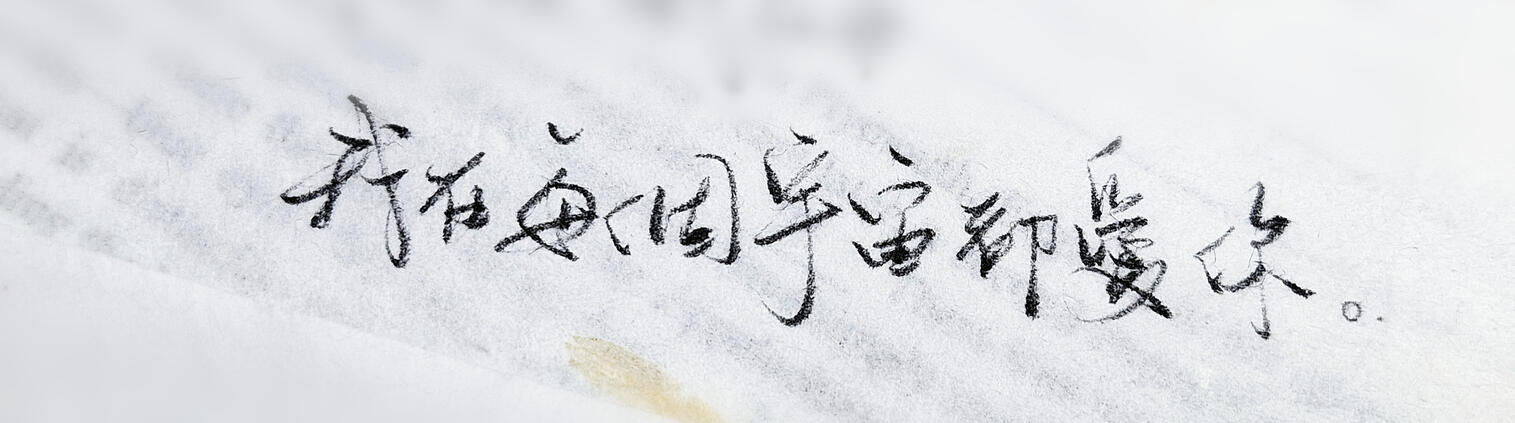 我在每個宇宙都愛你。